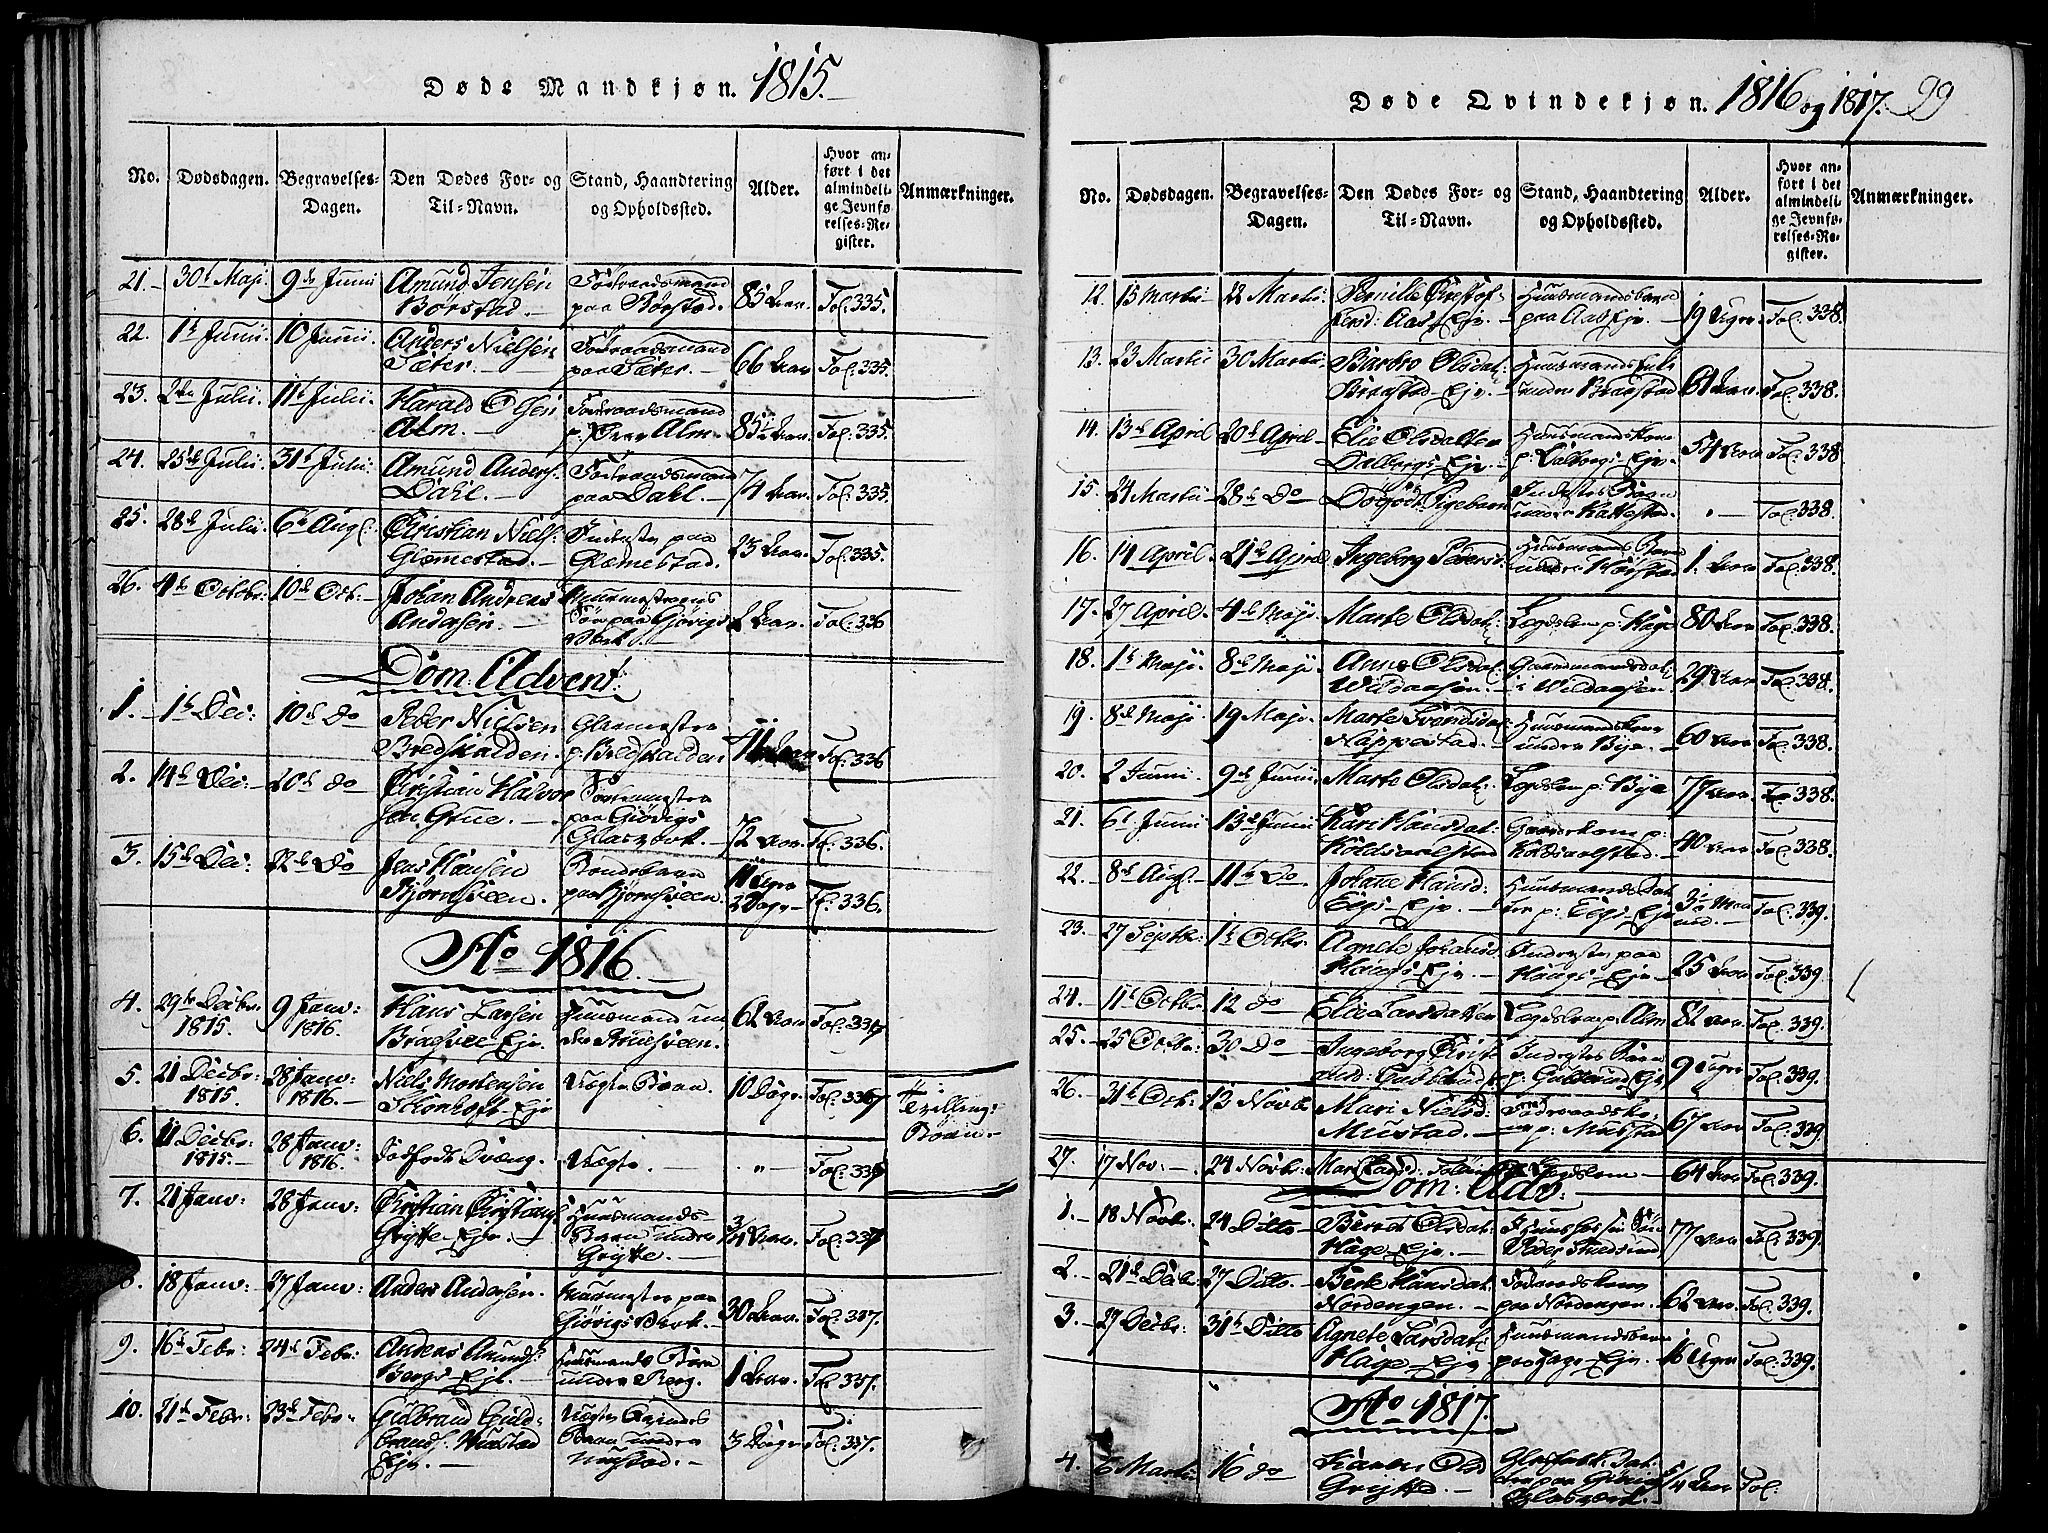 Døde Mandkjøn. 1815.
No. Dødsdagen. Begravelses-Dagen. Den Dødes For- og Til-Navn. Stand, Haandtering og Opholdssted. Alder. Hvor anført i det almindelige Jevnførelses-Register. Anmærkninger.
21. 30t Maji. 9de Junii Amund Jensen Børstad. Föderaadsmand paa Börstad. 85 Aar. Fol. 335.
22. 1t Junii. 10 Junii. Anders Nielsen Sæter. Föderaadsmand paa Sæter. 66 Aar Fol. 335.
23. 2de Julii. 11t Julii. Harald Olsen Alm. Föderaadsmand Alm. 85 Aar. Fol. 335.
24. 25de Julii. 31t Julii. Amund Anders: Dahl. Föderaadsmand paa Dahl. 74 Aar. Fol. 335.
25. 28de Julii. 6t Aug: Christian Niels: Glæmestad. Inderste paa Glæmestad. 23 Aar. Fol. 335.
26. 4de Octobr: 10de Oct: Johan Andreas Andersen. Søn paa Gjövigs Værk. 2 Aar. Fol. 336
Dom: Advent:
1. 1t Dec: 10de Do Peder Nielsen Bredskalden. Glasmester p: Bredskalden. Aar Fol. 336
2. 14de Dec: 20de do Christian Halvorsen Grue. paa Giövigs Glasværk. 72 Aar. Fol. 336.
3. 15de Dec: 22de Do Jens Hansen Bjørnsveen. Bondebarn paa Bjørnsveen. 11 Uger 2 Dage Fol. 336.
Ao 1816.
4. 29de Decbr: 1815. 9 Janv: 1816. Hans Larsen Bræsvee Eje. Huusmand under Bruesveen. 62 Aar. Fol. 337
5. 21 Decbr: 1815. 28 Janv: 1816. Niels Mortensen Schonhoft Eje Uægte Barn. 10 Dage. Fol. 337 Tvilling: Børn.
6. 11 Decbr: 1815. 28 Janv: 1816. Dødfødt Dreng. Uægte. " Fol. 337
7. 21 Janv: 28 Janv: Christian Christians: Grytte Eje. Huusmands-Barn under Grytte. 3/4 Aar. Fol. 337
8. 18 Janv: 27 Janv: Anders Andersen. paa Giövigs Værk. 30 Aar. Fol. 337.
9. 16t Febr: 24de Febr: Anders Amunds: Bergs Eje. Huusmands Barn under Berg. 1 Aar. Fol. 337.
10. 21de Febr: 23de Febr: Gulbrand Guldbrands: Mustad Eje. Uægte Barn under Mustad. 3 Dage Fol. 337.
Døde Qvindekjøn. 1816 og 1817. 99
No. Dødsdagen. Begravelses-Dagen. Den Dødes For- og Til-Navn. Stand, Haandtering og Opholdssted. Alder. Hvor anført i det almindelige Jevnførelses-Register. Anmærkninger.
12. 15 Martii 22 Martii. Pernille Christoffersd: Aas Eje. Huusmandsbarn paa Aas Eje. 19 Uger. Fol. 338.
13. 23 Martii 30 Martii. Barbro Olsdat: Bræstad Eje. Huusmands Enke under Bræstad 61 Aar. Fol. 338.
14. 13de April 20de April Elie Olsdatter Dalborgs Eje. Huusmandskone p: Dalborgs Eje. 54 Aar Fol. 338
15. 24 Martii 28de Do Dødfödt Pigebarn Inderstes Barn under Kattestad. Fol. 338.
16. 14 April. 21de April Ingeborg Pedersd: Huusmands Barn under 1. Aar Fol. 338.
17. 27 April. 4de Maji. Marte Olsdat: Lægdslem p: Hage 80 Aar Fol. 338.
18. 1t Maji. 8de Maji. Anne Olsdat: Wildaasen. Gaardmandsdat: i Wildaasen. 29 Aar Fol. 338.
19. 8de Maji 19 Maji. Marte Svendsdat: Nappestad. Huusmandskone under Bye. 60 Aar Fol. 338.
20. 2 Junii. 9de Junii Marte Olsdat: Lægdslem p: Bye 77 Aar Fol. 338.
21. 6t Junii 13de Junii Kari Hansdat: Koldsvalstad Gaardkone p: Koldsvalstad. 40 Aar Fol. 338
22. 8de Aug: 11te Do. Johanne Hansd: Eegs Eje. Huusmands Datter p: Eegs Eje 3 Maaned. Fol. 339.
23. 27 Septbr: 1t Octbr. Agnete Johansd: Haags Eje. Inderste paa Haags Eje. 25 Aar Fol. 339.
24. 11t Octbr. 12 do Elie Larsdatter Lægdslem p: Alm 82 Aar Fol. 339.
25. 25 Octbr: 30 Do Ingeborg Inderstes Barn 9 Uger Fol. 339.
26. 31t Oct: 13 Novb: Mari Nielsd: Mustad. p: Mustad 67 Aar Fol. 339.
27. 17 Nov: 24 Novbr: Mari Larsd: Lægdslem 64 Aar Fol. 339.
Dom: Adv:
1. 18 Novbr: 24 Ditto Berthe Olsdat: Hage Eje. 77 Aar Fol. 339.
2. 21de Decbr: 27 Ditto. Berte Hansdat: Nordengen. paa Nordengen. 62 Aar Fol. 339.
3. 27 Decbr: 31t Ditto Agnete Larsdat: Hage Eje Huusmandsbarn paa Hage Eje. 16 Uger Fol. 339.
Ao 1817.
4. 6 Martii 16 do Karen Olsd: Grytte. Datter paa Giövigs Glasværk. 5/4 Aar Fol.